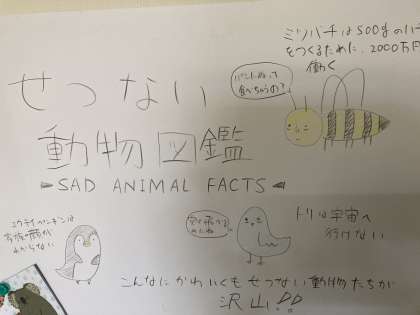 ミツバチは500gのハ
をつくるために、2000万
働く
パンにぬって
食べちゃうの?
せつない
動物図鑑
SAD ANIMAL FACTS
コウテイペンギンは
家族の顔が
わからない
トリは宇宙へ
行けない
こんなにかわいくもせつない動物たちが
沢山!!